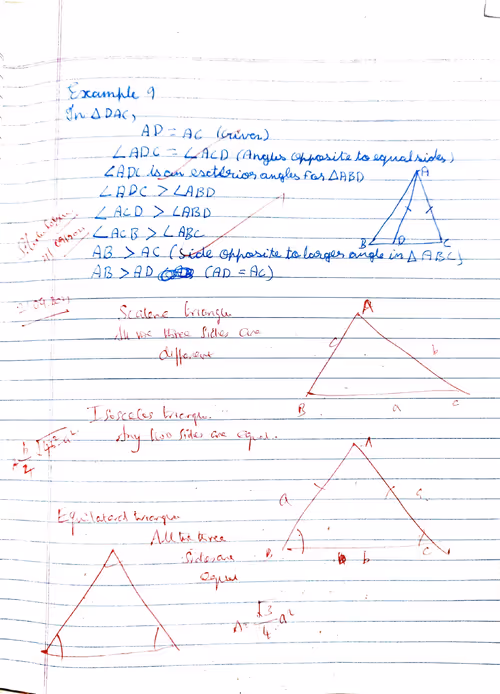 Example 9
In △DAC,
AD = AC (Given)
∠ADC = ∠ACD (Angles opposite to equal sides)
∠ADC is an exterior angles for △ABD
∠ADC > ∠ABD
∠ACD > ∠ABD
∠ACB > ∠ABC
AB > AC (Side opposite to larger angle in △ABC)
AB > AD (AD = AC)
A
B
D
C
Scalene triangle
All the three sides are
different
A
c
b
B
a
C
Isosceles triangle.
Any two sides are equal.
A
a
a
B
b
C
Equilateral triangle
All the three
sides are
equal
A = √3/4 a²